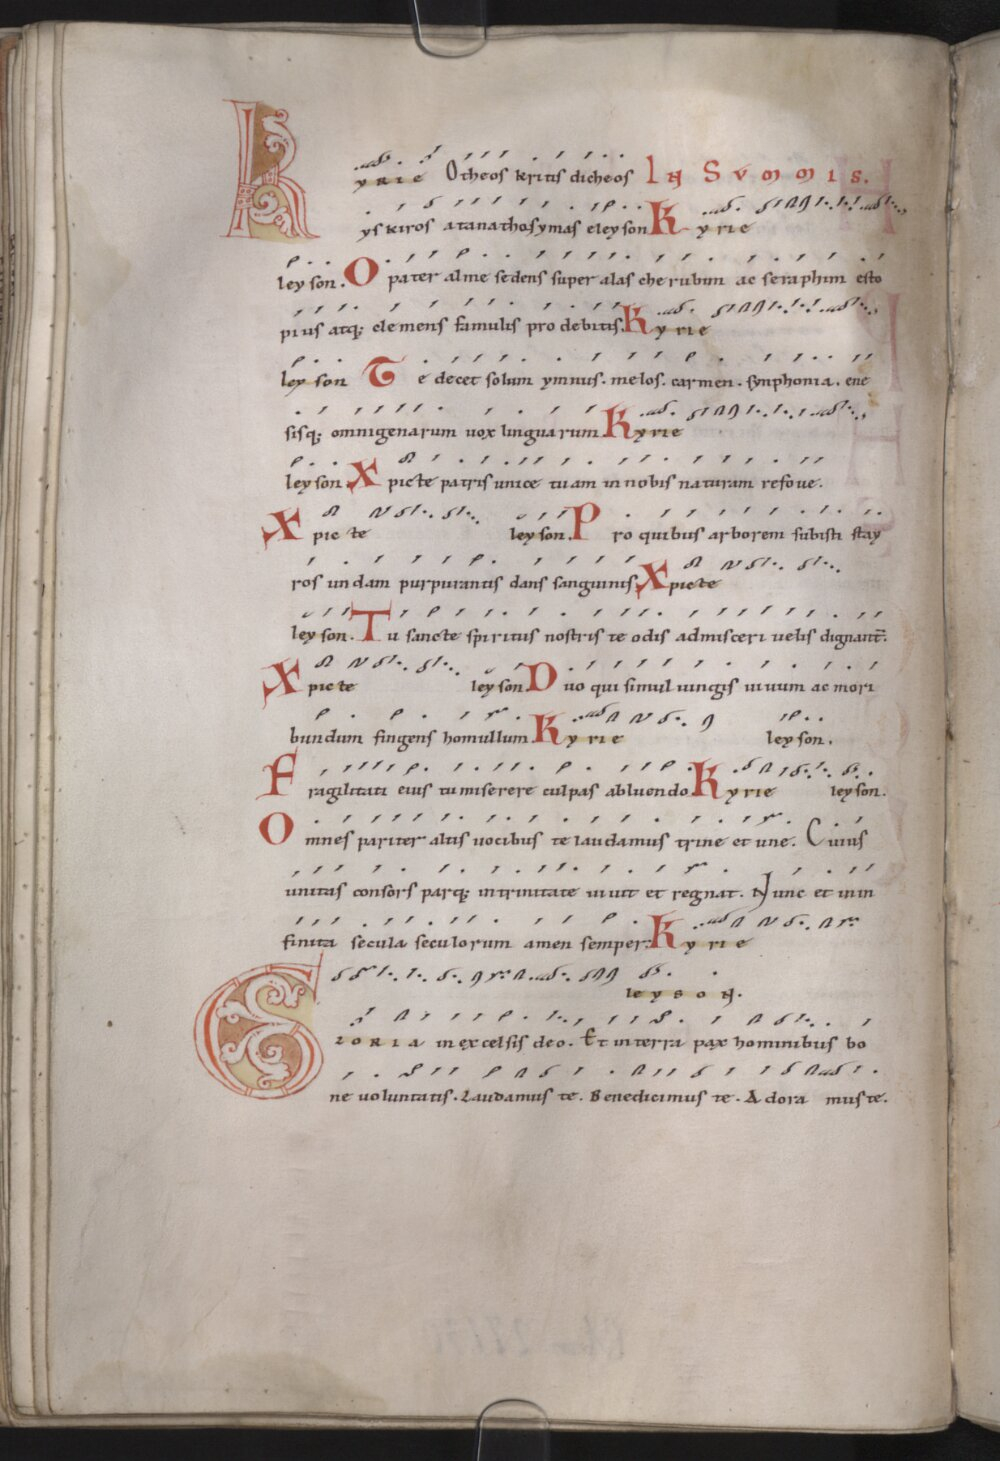 Kyrie Otheos kritis dicheos IN SVMMIS.
yskiros atanathosymas eleyson Kyrie
leyson. O pater alme sedens super alas cherubim ac seraphim esto
pius atq; clemens famulis pro debitis. Kyrie
leyson Te decet solum ymnus. melos. carmen. synphonia. ene
sisq; omnigenarum uox linguarum Kyrie
leyson. Xpicte patris unice tuam in nobis naturam refoue.
Xpicte leyson. Pro quibus arborem subisti stay
ros undam purpurantis dans sanguinis Xpicte
leyson. Tu sancte spiritus nostris te odis admisceri uelis dignant̄.
Xpicte leyson Duo qui simul iungis uiuum ac mori
bundum fingens homullum. Kyrie leyson.
Fragilitati eius tu miserere culpas abluendo. Kyrie leyson.
Omnes pariter altis uocibus te laudamus trine et une. Cuius
unitas consors parq; in trinitate uiuit et regnat. Nunc et in in
finita secula seculorum amen semper. Kyrie
leyson.
Gloria in excelsis deo. Et in terra pax hominibus bo
ne uoluntatis. Laudamus te. Benedicimus te. Adora mus te.